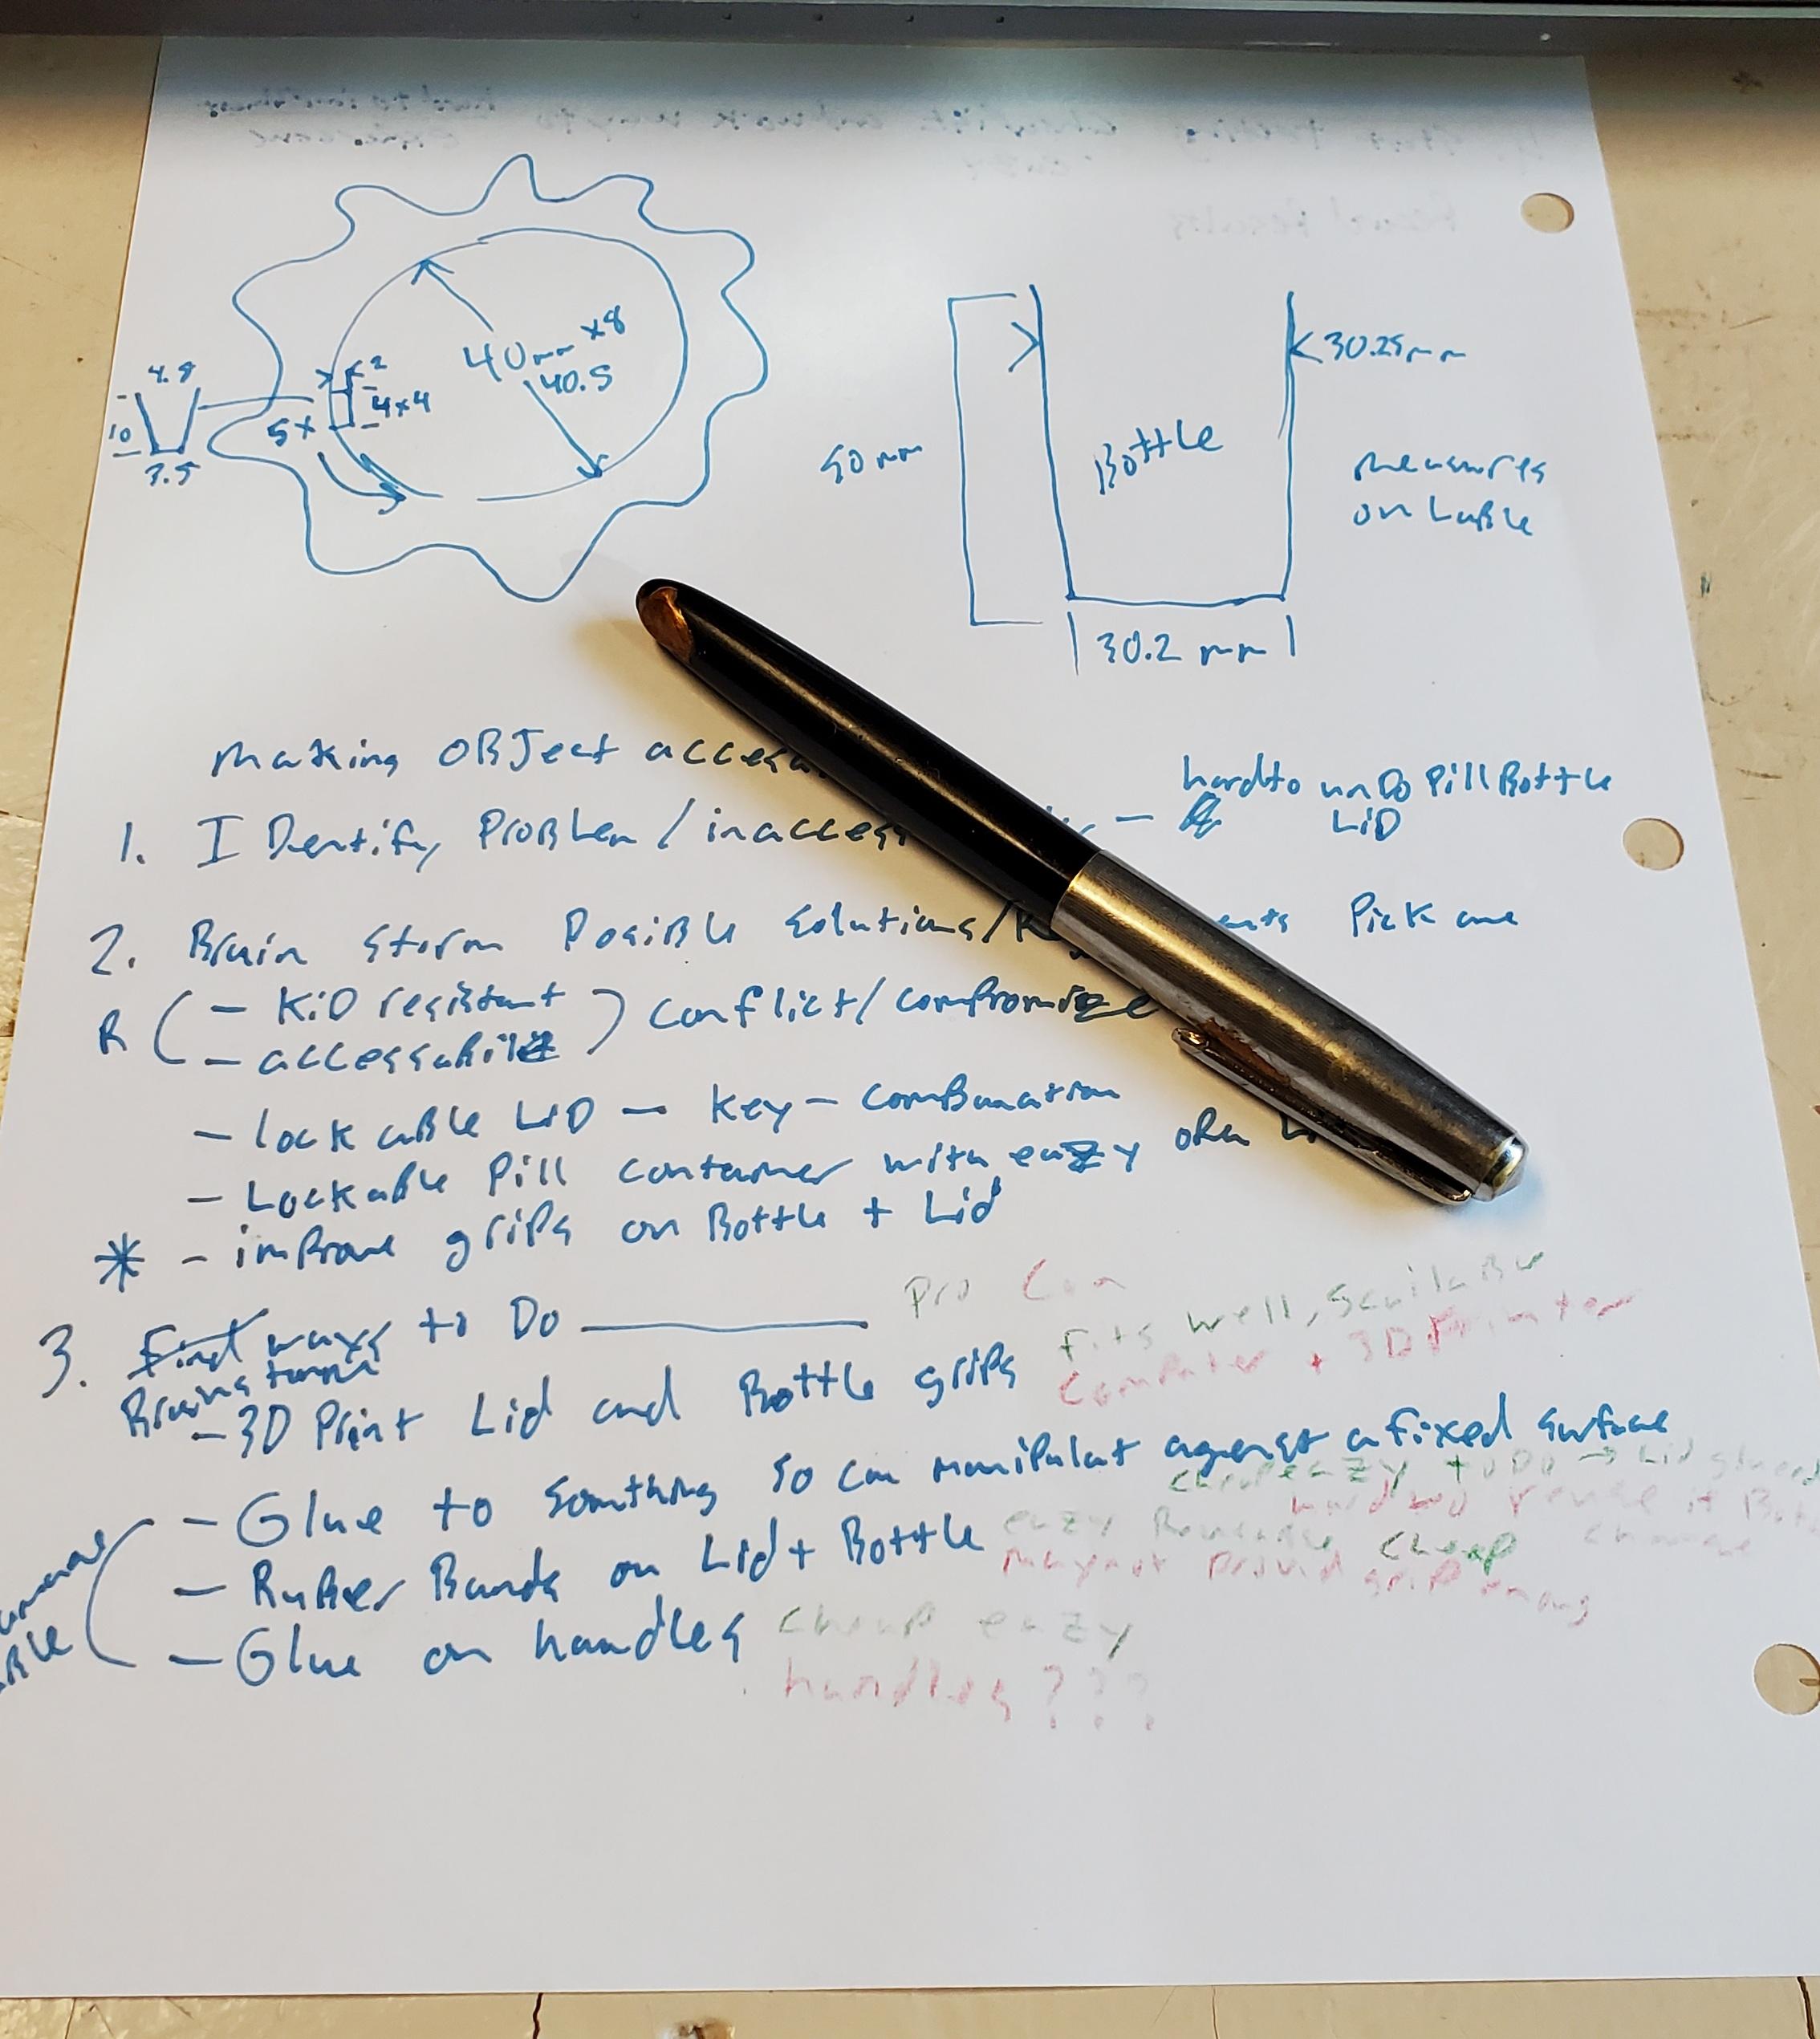 40mm x8
40.5
4.8
10
3.5
2
4x4
5x
50mm
Bottle
30.25mm
measures
on Lable
30.2 mm
making OBJect
1. IDentify ProBlem /
hard to unDo Pill Bottle
LiD
2. Brain storm PosiBle solutions/
Pick one
R
- KiD resistant
conflict/compromize
- lockable LiD - Key - comBination
- Lockable Pill container with eazy open
* - improve grips on Bottle + Lid
3. Find ways to Do
Brainstorm
Pro Con
- 3D Print Lid and Bottle grips
fits well, scailable
computer + 3D Printer
- Glue to Somthing so can manipulat agenst a fixed surface
cheap eazy to Do → Lid glued
- RuBBer Bands on Lid + Bottle
eazy cheap
may not provid grip
- Glue on handles
cheap eazy
handles???